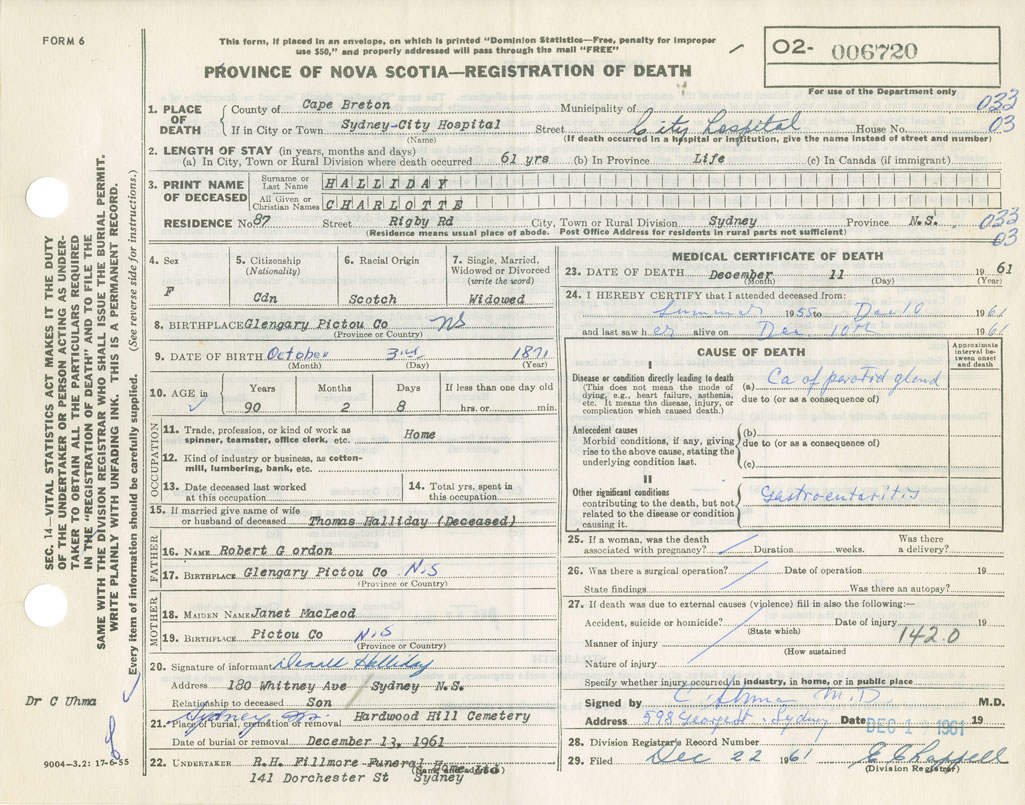 FORM 6
This form, if placed in an envelope, on which is printed "Dominion Statistics—Free, penalty for improper
use $50," and properly addressed will pass through the mail "FREE"
O2- 006720
For use of the Department only
PROVINCE OF NOVA SCOTIA—REGISTRATION OF DEATH
SEC. 14—VITAL STATISTICS ACT MAKES IT THE DUTY
OF THE UNDERTAKER OR PERSON ACTING AS UNDER-
TAKER TO OBTAIN ALL THE PARTICULARS REQUIRED
IN THE "REGISTRATION OF DEATH" AND TO FILE THE
SAME WITH THE DIVISION REGISTRAR WHO SHALL ISSUE THE BURIAL PERMIT.
WRITE PLAINLY WITH UNFADING INK. THIS IS A PERMANENT RECORD.
Every item of information should be carefully supplied. (See reverse side for instructions.)
Dr C Uhma
9004-3.2: 17-6-55
1. PLACE OF DEATH
County of Cape Breton Municipality of 033
If in City or Town Sydney-City Hospital Street City Hospital House No. 03
(Name) (If death occurred in a hospital or institution, give the name instead of street and number)
2. LENGTH OF STAY (in years, months and days)
(a) In City, Town or Rural Division where death occurred 61 yrs (b) In Province Life (c) In Canada (if immigrant)
3. PRINT NAME OF DECEASED
Surname or Last Name HALLIDAY
All Given or Christian Names CHARLOTTE
RESIDENCE No. 87 Street Rigby Rd City, Town or Rural Division Sydney Province N.S. 033
03
(Residence means usual place of abode. Post Office Address for residents in rural parts not sufficient)
4. Sex F
5. Citizenship (Nationality) Cdn
6. Racial Origin Scotch
7. Single, Married, Widowed or Divorced (write the word) Widowed
8. BIRTHPLACE Glengary Pictou Co NS
(Province or Country)
9. DATE OF BIRTH October 3rd 1871
(Month) (Day) (Year)
10. AGE in Years 90 Months 2 Days 8 If less than one day old hrs. or min.
OCCUPATION
11. Trade, profession, or kind of work as spinner, teamster, office clerk, etc. Home
12. Kind of industry or business, as cotton-mill, lumbering, bank, etc.
13. Date deceased last worked at this occupation
14. Total yrs. spent in this occupation
15. If married give name of wife or husband of deceased Thomas Halliday (Deceased)
FATHER
16. NAME Robert G ordon
17. BIRTHPLACE Glengary Pictou Co N.S
(Province or Country)
MOTHER
18. MAIDEN NAME Janet MacLeod
19. BIRTHPLACE Pictou Co N.S
(Province or Country)
20. Signature of informant Halliday
Address 180 Whitney Ave Sydney N.S.
Relationship to deceased Son
21. Place of burial, cremation or removal Sydney Hardwood Hill Cemetery
Date of burial or removal December 13, 1961
22. UNDERTAKER R.H. Fillmore Funeral Home Ltd
(Name and address)
141 Dorchester St Sydney
MEDICAL CERTIFICATE OF DEATH
23. DATE OF DEATH December 11 1961
(Month) (Day) (Year)
24. I HEREBY CERTIFY that I attended deceased from:
Summer 1955 to Dec 10 1961
and last saw her alive on Dec 10th 1961
CAUSE OF DEATH
Approximate interval between onset and death
I
Disease or condition directly leading to death
(This does not mean the mode of dying, e.g., heart failure, asthenia, etc. It means the disease, injury, or complication which caused death.)
(a) Ca of parotid gland
due to (or as a consequence of)
Antecedent causes
Morbid conditions, if any, giving rise to the above cause, stating the underlying condition last.
(b)
due to (or as a consequence of)
(c)
II
Other significant conditions
contributing to the death, but not related to the disease or condition causing it.
Gastroentaritis
25. If a woman, was the death associated with pregnancy? Duration weeks. Was there a delivery?
26. Was there a surgical operation? Date of operation 19
State findings Was there an autopsy?
27. If death was due to external causes (violence) fill in also the following:—
Accident, suicide or homicide? Date of injury 19
(State which)
142.0
Manner of injury
(How sustained
Nature of injury
Specify whether injury occurred in industry, in home, or in public place
Signed by C Uhma M.D. M.D.
Address 598 George St. Sydney Date DEC 1 1961 19
28. Division Registrar's Record Number
29. Filed Dec 22 1961 E Chappell
(Division Registrar)